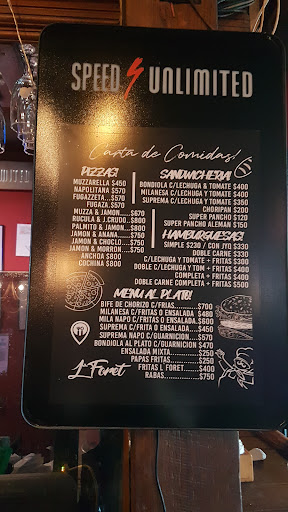 SPEED UNLIMITED
Carta de Comidas!
PIZZAS!
MUZZARELLA $450
NAPOLITANA $570
FUGAZZETA...$570
FUGAZA.$570
MUZZA & JAMON......$670
RUCULA & J.CRUDO...$800
PALMITO & JAMON....$800
JAMON & ANANA......$750
JAMON & CHOCLO.....$750
JAMON & MORRON.....$750
ANCHOA $800
COCHINA $800
SANDWICHERIA!
BONDIOLA C/LECHUGA & TOMATE $400
MILANESA C/LECHUGA & TOMATE $400
SUPREMA C/LECHUGA Y TOMATE $350
CHORIPAN $200
SUPER PANCHO $120
SUPER PANCHO ALEMAN $150
HAMBURGUESAS!
SIMPLE $230 / CON JYH $330
DOBLE CARNE $330
C/LECHUGA Y TOMATE + FRITAS $300
DOBLE C/LECHUGA Y TOM + FRITAS $400
COMPLETA + FRITAS $400
DOBLE CARNE COMPLETA + FRITAS $500
MENU AL PLATO!
BIFE DE CHORIZO C/FRIAS........$700
MILANESA C/FRITAS O ENSALADA $480
MILA NAPO C/FRITAS O ENSALADA.$600
SUPREMA C/FRITA O ENSALADA....$450
SUPREMA NAPO C/GUARNICION.....$570
BONDIOLA AL PLATO C/GUARNICION $470
ENSALADA MIXTA..........$250
PAPAS FRITAS............$250
FRITAS L FORET....$400
RABAS.........$750
L'Foret